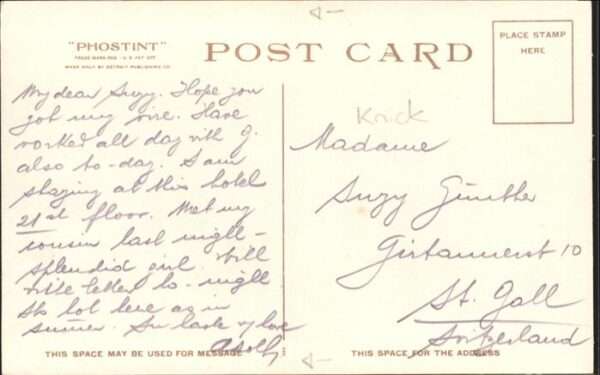 "PHOSTINT"
TRADE MARK REG - U S PAT OFF
MADE ONLY BY DETROIT PUBLISHING CO.
POST CARD
PLACE STAMP
HERE
Knick
My dear Suzy. Hope you
got my wire. Have
worked all day with J.
also to-day. I am
staying at this hotel
21st floor. Met my
cousin last night -
splendid girl. Will
write letter to-night
Its hot here as in
summer. In haste & love
Madame
Suzy Günther
10
St. Gall
Switzerland
THIS SPACE MAY BE USED FOR MESSAGE
THIS SPACE FOR THE ADDRESS